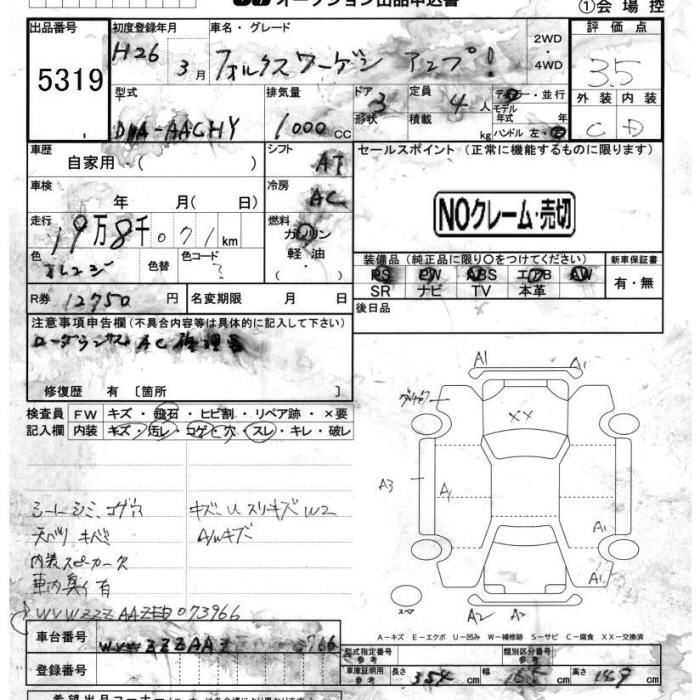 オークション出品申込書
①会場控
出品番号 5319
初度登録年月 H26 3月
車名・グレード フォルクスワーゲン アップ!
2WD・4WD
評価点 3.5
型式 DBA-AACHY
排気量 1000cc
ドア形状 3
定員 4人
積載 kg
ディーラー・並行
モデル年式 年
ハンドル 左・右
外装 C
内装 D
車歴 自家用・( )
シフト AT
セールスポイント (正常に機能するものに限ります)
NOクレーム・売切
車検 年 月( 日)
冷房 AC
走行 19万8千071km
燃料 ガソリン 軽油・( )
色 オレンジ
色替
色コード
装備品 (純正品に限り○をつけてください)
PS PW ABS エアB AW
SR ナビ TV 本革
新車保証書 有・無
R券 12750円
名変期限 月 日
後日品
注意事項申告欄(不具合内容等は具体的に記入して下さい)
AC
修復歴 有 〔箇所 〕
検査員 FW キズ・飛石・ヒビ割・リペア跡・×要
記入欄 内装 キズ・汚レ・コゲ・穴・スレ・キレ・破レ
シートシミ、コゲ穴
キズ、U スリキズ W2
天ベリ キベミ
A/Wキズ
内装スピーカーク
車内臭イ有
WVWZZZAAZED073966
車台番号 WVWZZZAAZ 966
登録番号
A1 A1
XX
A3 A A1
A1
スペア
A2 A2
A-キズ E-エクボ U-凹み W-補修跡 S-サビ C-腐食 XX-交換済
型式指定番号 参考
類別区分番号 参考
車庫証明用 参考 長さ 354cm 幅 cm 高さ 149cm
希望出品コーナー